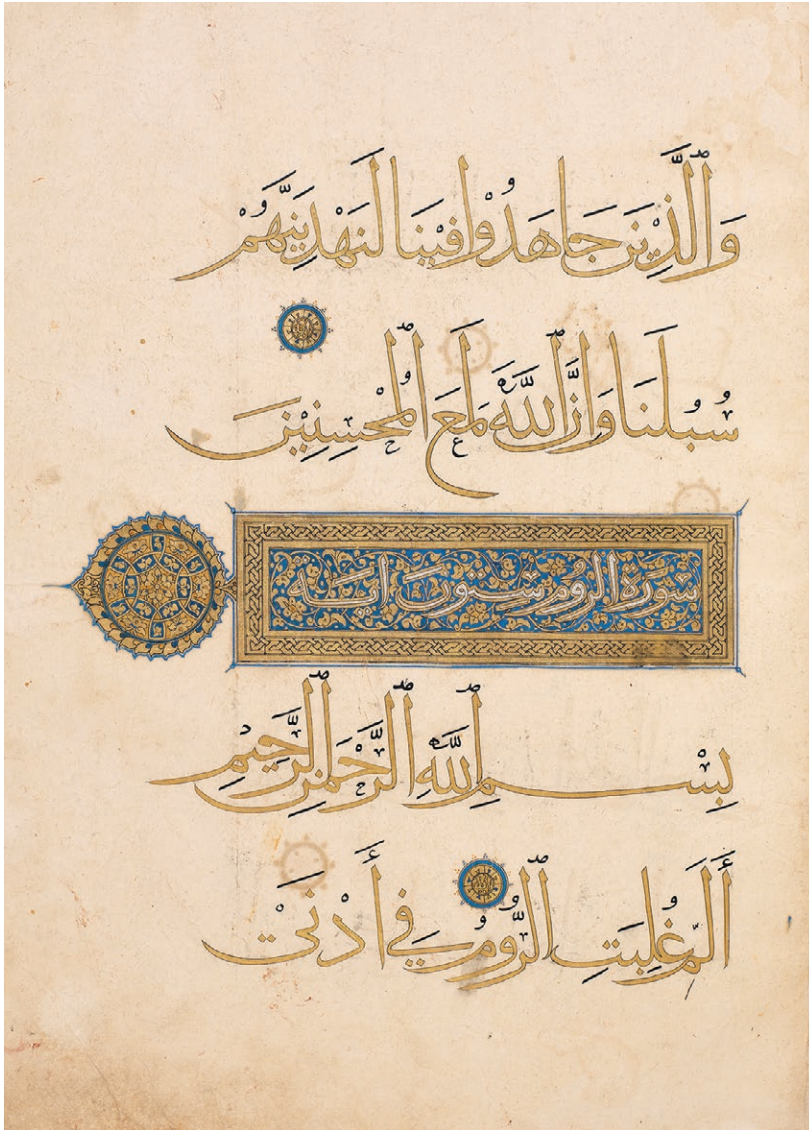 وَالَّذِينَ جَاهَدُوا فِينَا لَنَهْدِيَنَّهُمْ
سُبُلَنَا وَإِنَّ اللَّهَ لَمَعَ الْمُحْسِنِينَ
سُورَة الرُّوم ستون اية
بِسْمِ اللَّهِ الرَّحْمَنِ الرَّحِيمِ
أَلَم غُلِبَتِ الرُّومُ فِي أَدْنَى